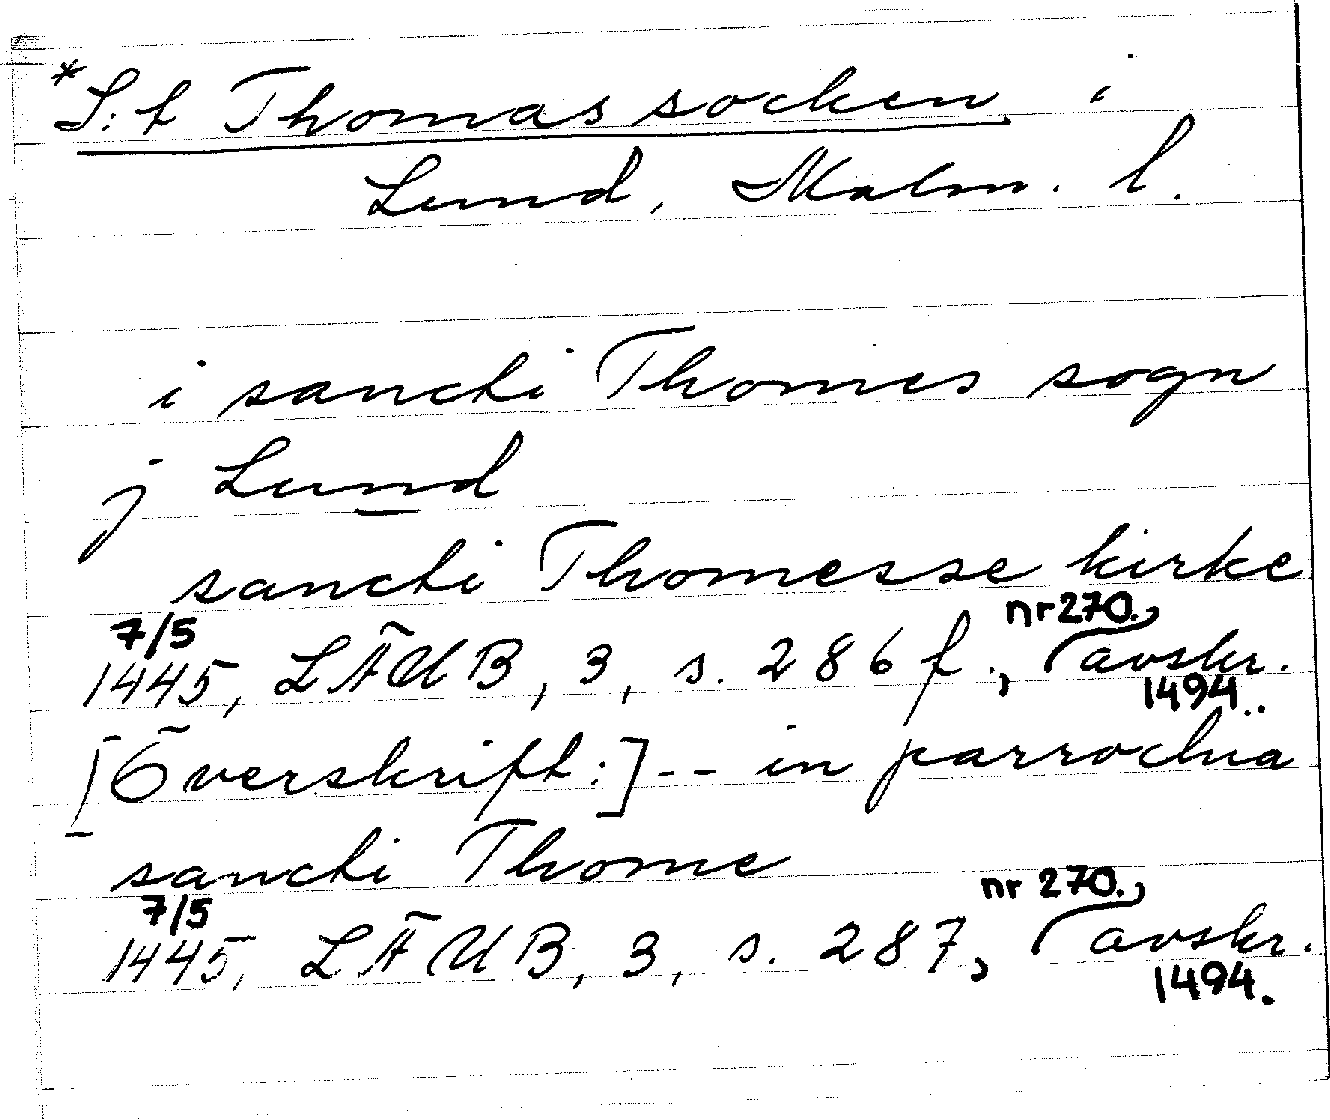 *S:t Thomas socken i
Lund, Malm. l.
i sancti Thomes sogn
j Lund
sancti Thomesse kirke
7/5
1445, LÄUB, 3, s. 286 f., nr 270., avskr.
1494.
[Överskrift:] -- in parrochia
sancti Thome
7/5
1445, LÄUB, 3, s. 287, nr 270., avskr.
1494.